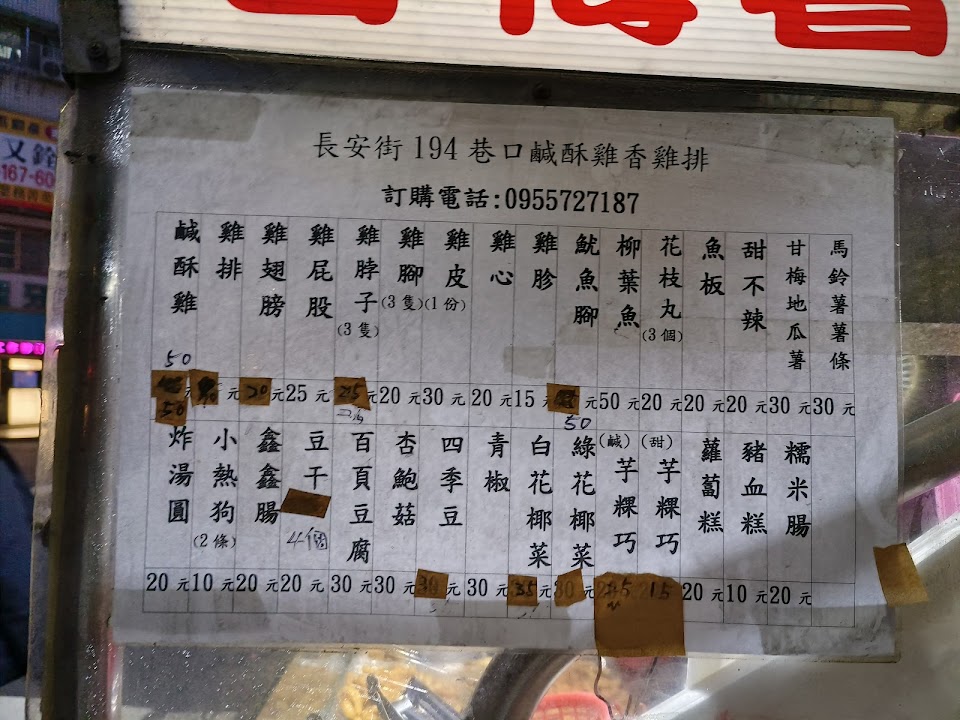 又銓
167-60
長安街 194 巷口鹹酥雞香雞排
訂購電話:0955727187
鹹酥雞
50
雞排
雞翅膀
雞屁股
雞脖子
(3 隻)
雞腳
(3 隻)
雞皮
(1 份)
雞心
雞胗
魷魚腳
柳葉魚
花枝丸
(3 個)
魚板
甜不辣
甘梅地瓜薯
馬鈴薯薯條
50 元 元 元 25 元 25 元 20 元 30 元 20 元 15 元 50 50 元 20 元 20 元 20 元 30 元 30 元
炸湯圓
小熱狗
(2 條)
鑫鑫腸
豆干
4個
百頁豆腐
杏鮑菇
四季豆
青椒
白花椰菜
綠花椰菜
(鹹)
芋粿巧
(甜)
芋粿巧
蘿蔔糕
豬血糕
糯米腸
20 元 10 元 20 元 20 元 30 元 30 元 30 元 30 元 35 元 30 元 20 元 10 元 20 元